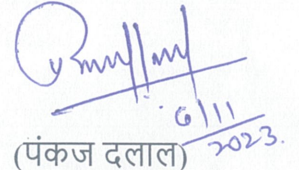 6/11
2023.
(पंकज दलाल)